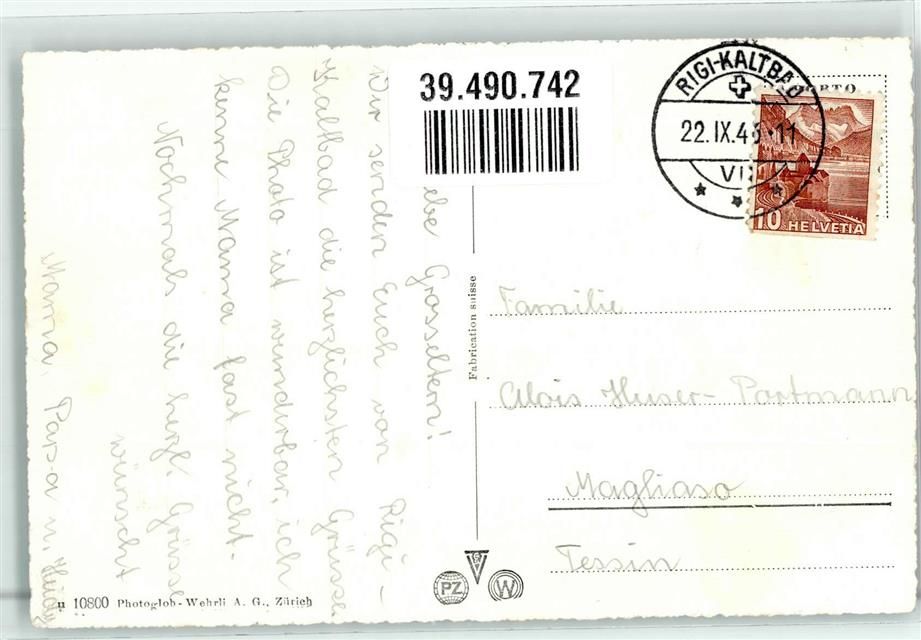 39.490.742
RIGI-KALTBAD
22.IX.43-11
VII
PORTO
10 HELVETIA
ebe Grosseltern!
Wir senden Euch von Rigi-
Kaltbad die herzlichsten Grüsse
Die Photo ist wunderbar, ich
kenne Mama fast nicht.
Nochmals die herzl. Grüsse
wünscht
Mama, Papa u. Heidi
Fabrication suisse
Familie
Alois Huser-Portmann
Magliaso
Tessin
PZ
W
10800 Photoglob-Wehrli A. G., Zürich